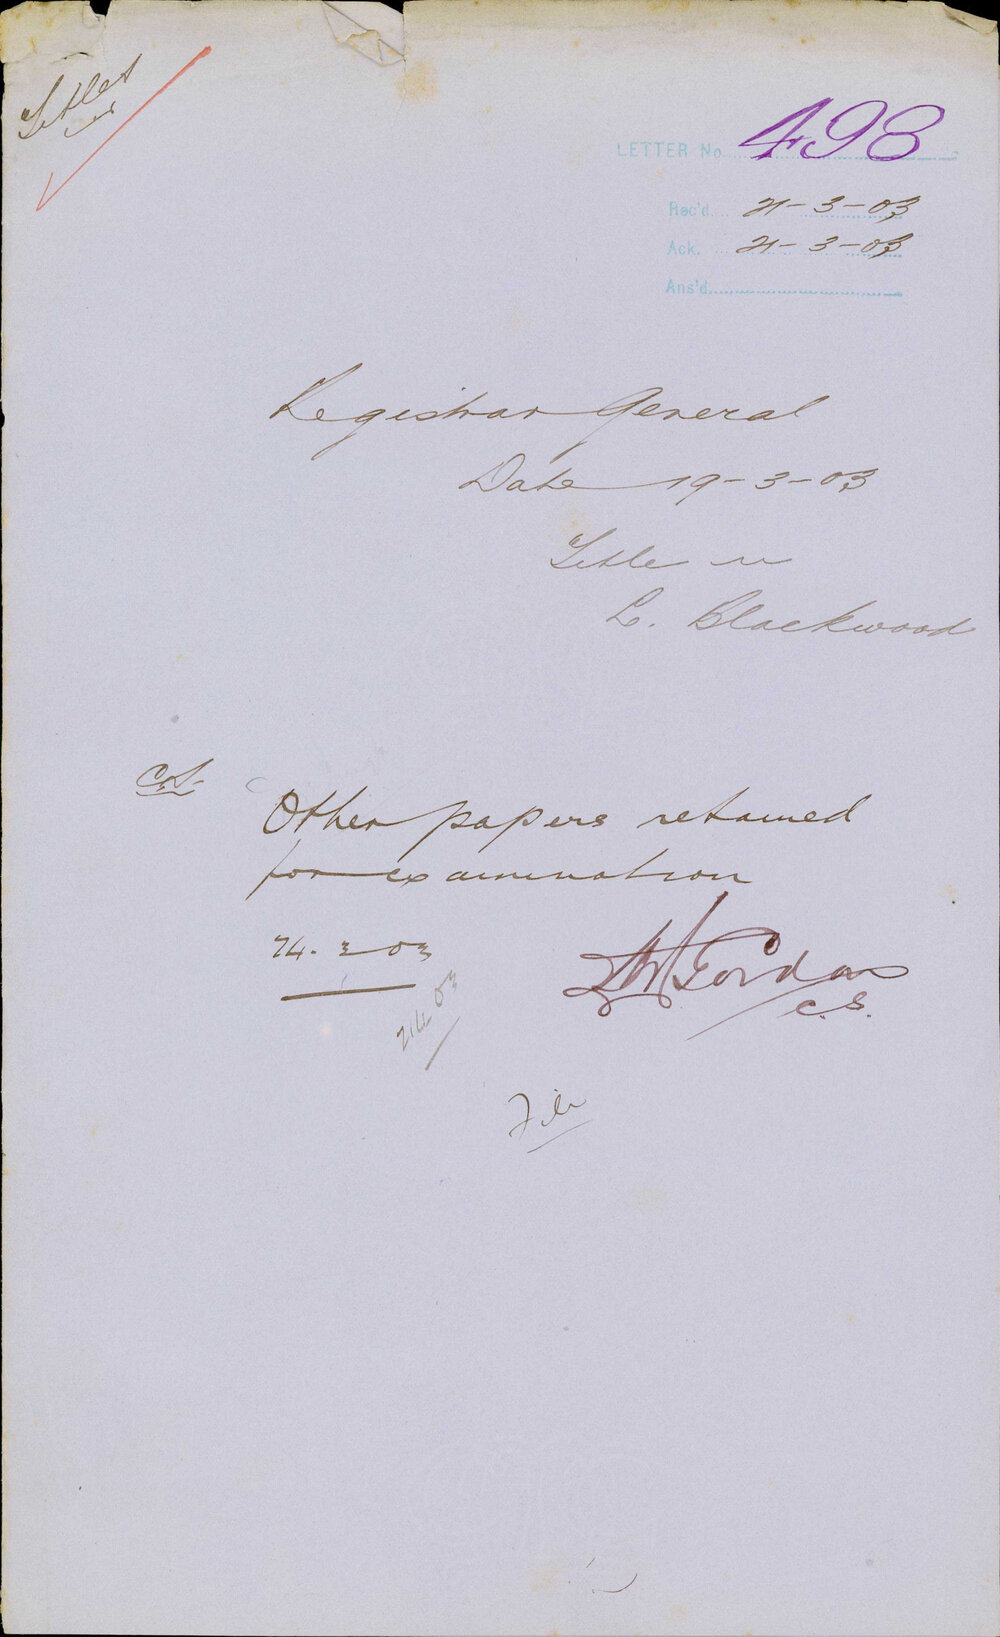 Titles
LETTER No. 498
Rec'd. 21-3-03
Ack. 21-3-03
Ans'd.
Registrar General
Date 19-3-03
Title
L. Blackwood
Other papers retained
for examination
24. 3 03
Gordon
C.S.
File